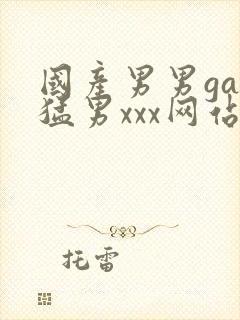 國産男男ga
猛男xxx网佔
托雷